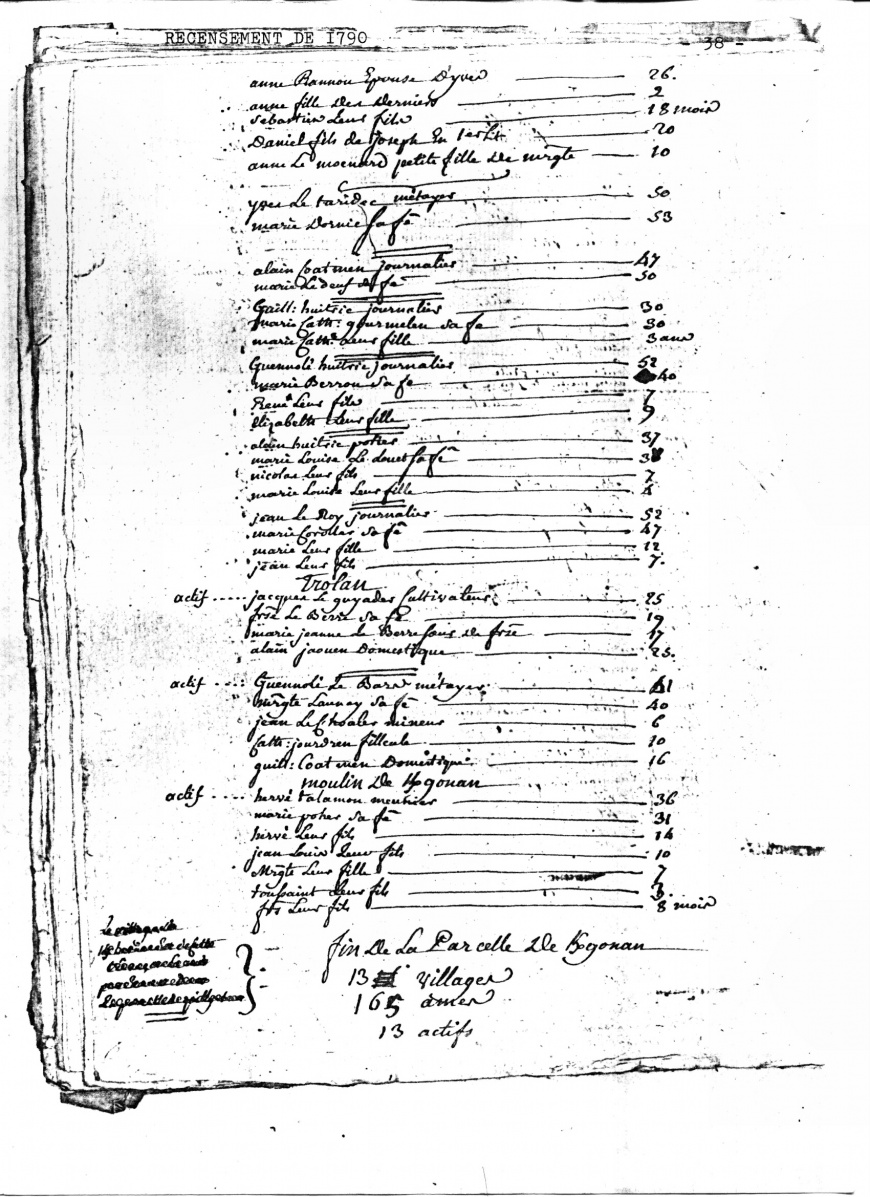 RECENSEMENT DE 1790 - 38 -
anne Rannou Epouse D'yves 26.
anne fille des derniers 2
Sebastien Leur fils 18 mois
Daniel fils de joseph En 1er Lit 20
anne Le moenard petite fille de mrgte 10
yves Le taridec métayer 50
marie Dornic sa fe 53
alain Coatmen journalier 47
marie Le deuf sa fe 50
Guill: huitric journalier 30
marie Cath: gourmelen sa fe 30
marie Cathe Leur fille 3 ans
Guennolé huitric journalier 52
marie Berrou sa fe 40
René Leur fils 7
Elizabeth Leur fille 9
alain huitric poher 37
marie Louise Le douet sa fe
nicolas Leur fils 7
marie Louise Leur fille 4
jean Le Roy journalier 52
marie Coroller sa fe 47
marie Leur fille 12
jean Leur fils 7.
Trolan
actif ..... jacques Le guyader Cultivateur 25
frse Le Berre sa fe 19
marie jeanne Le Berre sœur de frse 17
alain jaouen Domestique 25.
actif .... Guennolé Le Bars métayer 41
mrgte Launay sa fe 40
jean Le mineur 6
Cath: jourdren fillcule 10
guill: Coatmen Domestique 16
moulin De Kgonan
actif .... hervé talamon meunier 36
marie poher sa fe 31
hervé Leur fils 14
jean Louis Leur fils 10
Mrgte Leur fille 7
toussaint Leur fils 3.
frs Leur fils 8 mois
fin De La Parcelle De Kgonan
13 villages
165 âmes
13 actifs